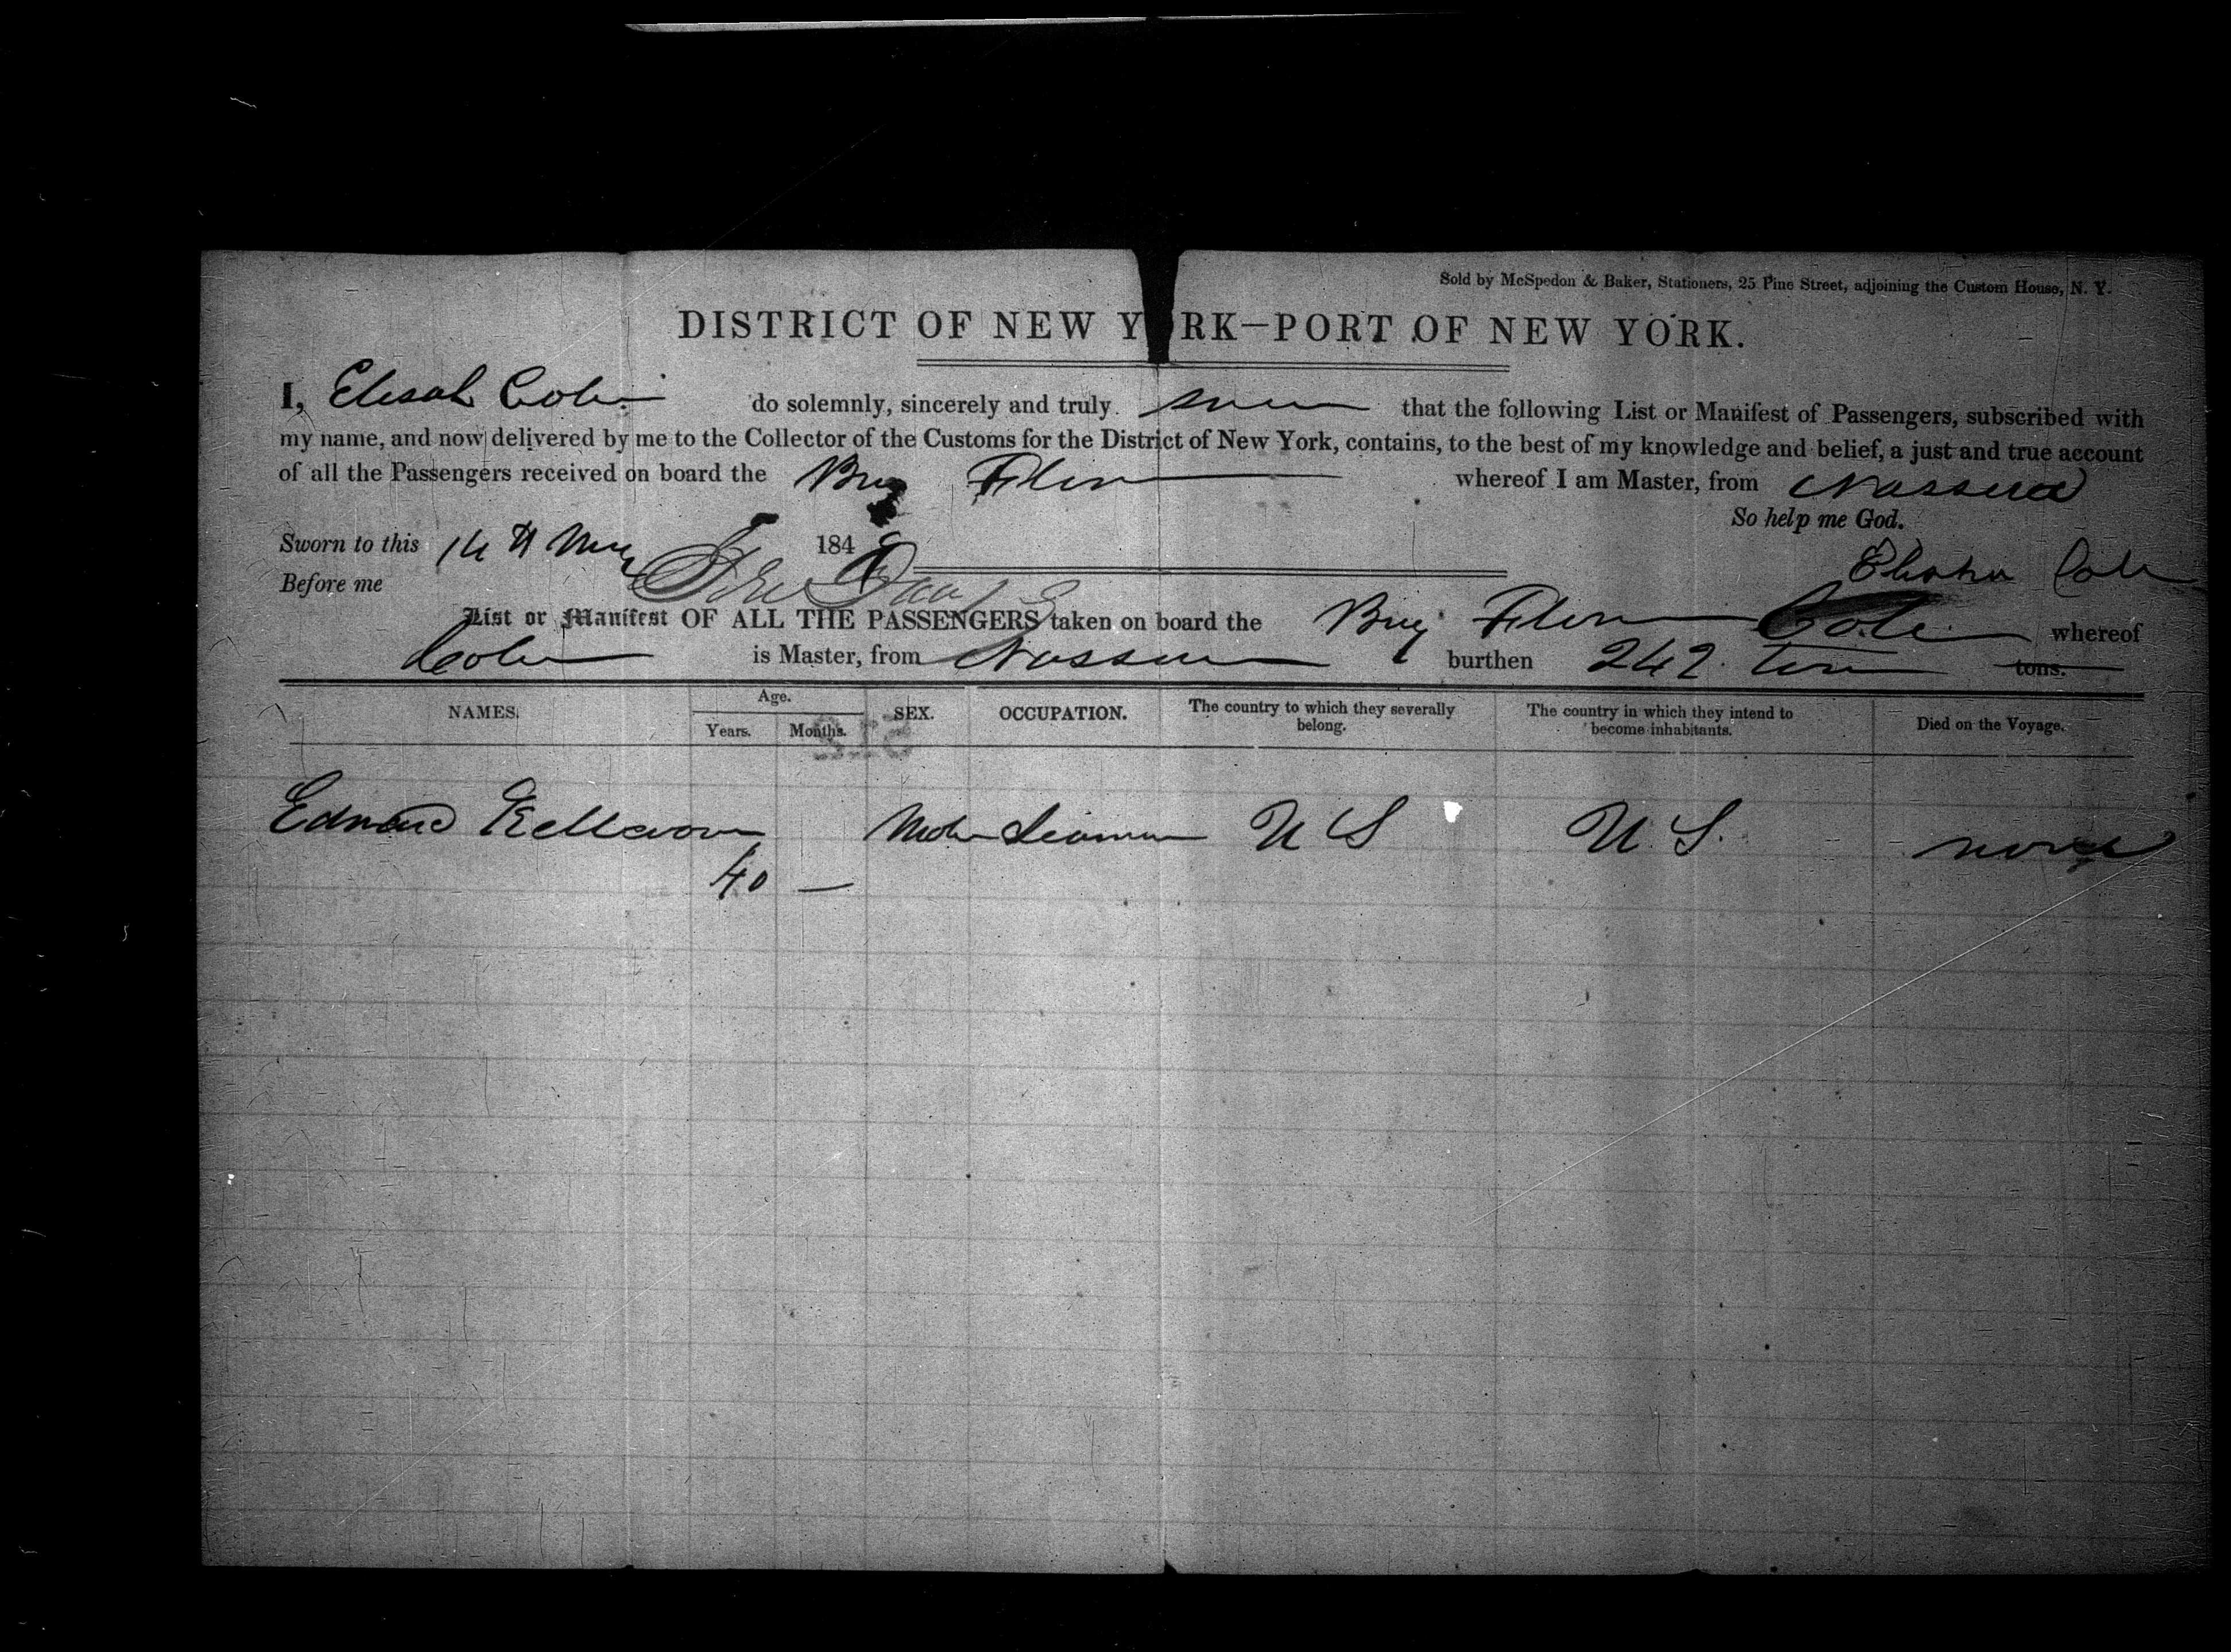 Sold by McSpedon & Baker, Stationers, 25 Pine Street, adjoining the Custom House, N. Y.
DISTRICT OF NEW Y RK—PORT OF NEW YORK.
I, Elisah Cole do solemnly, sincerely and truly that the following List or Manifest of Passengers, subscribed with
my name, and now delivered by me to the Collector of the Customs for the District of New York, contains, to the best of my knowledge and belief, a just and true account
of all the Passengers received on board the Brig whereof I am Master, from Nassau
So help me God.
Sworn to this 14th 184
Elisha Cole
Before me
List or Manifest OF ALL THE PASSENGERS taken on board the Brig Cole whereof
Cole is Master, from Nassau burthen 242 tons tons.
NAMES. Age. SEX. OCCUPATION. The country to which they severally belong. The country in which they intend to become inhabitants. Died on the Voyage.
Years. Months.
Edward Seaman U S U. S. none
40 —